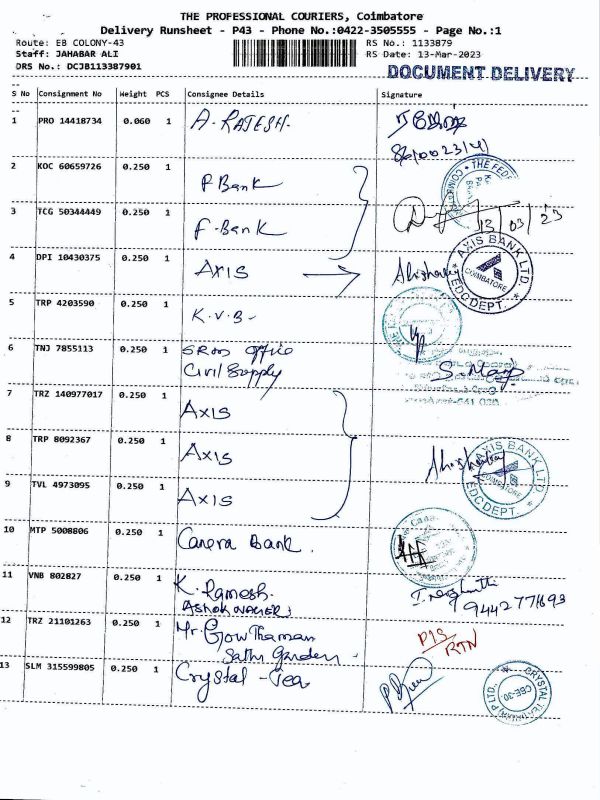 THE PROFESSIONAL COURIERS, Coimbatore
Delivery Runsheet - P43 - Phone No.:0422-3505555 - Page No.:1
Route: EB COLONY-43 RS No.: 1133879
Staff: JAHABAR ALI RS Date: 13-Mar-2023
DRS No.: DCJB113387901 DOCUMENT DELIVERY
S No Consignment No Weight PCS Consignee Details Signature
1 PRO 14418734 0.060 1 A. RAJESH.
2 KOC 60659726 0.250 1 F Bank THE FEDE
3 TCG 50344449 0.250 1 F. Bank 13/03/23
4 DPI 10430375 0.250 1 Axis AXIS BANK LTD. COIMBATORE EDC DEPT.
5 TRP 4203590 0.250 1 K.V.B-
6 TNJ 7855113 0.250 1 office
Civil Supply
7 TRZ 140977017 0.250 1 Axis
8 TRP 8092367 0.250 1 Axis AXIS BANK LTD. COIMBATORE EDC DEPT.
9 TVL 4973095 0.250 1 Axis
10 MTP 5008806 0.250 1 Canera Bank.
11 VNB 802827 0.250 1 K. Ramesh.
ASHOK NAGER
12 TRZ 21101263 0.250 1 Mr. Gowthaman RTN
Sathi Garden
13 SLM 315599805 0.250 1 Crystal - Tea CRYSTAL CBE-30